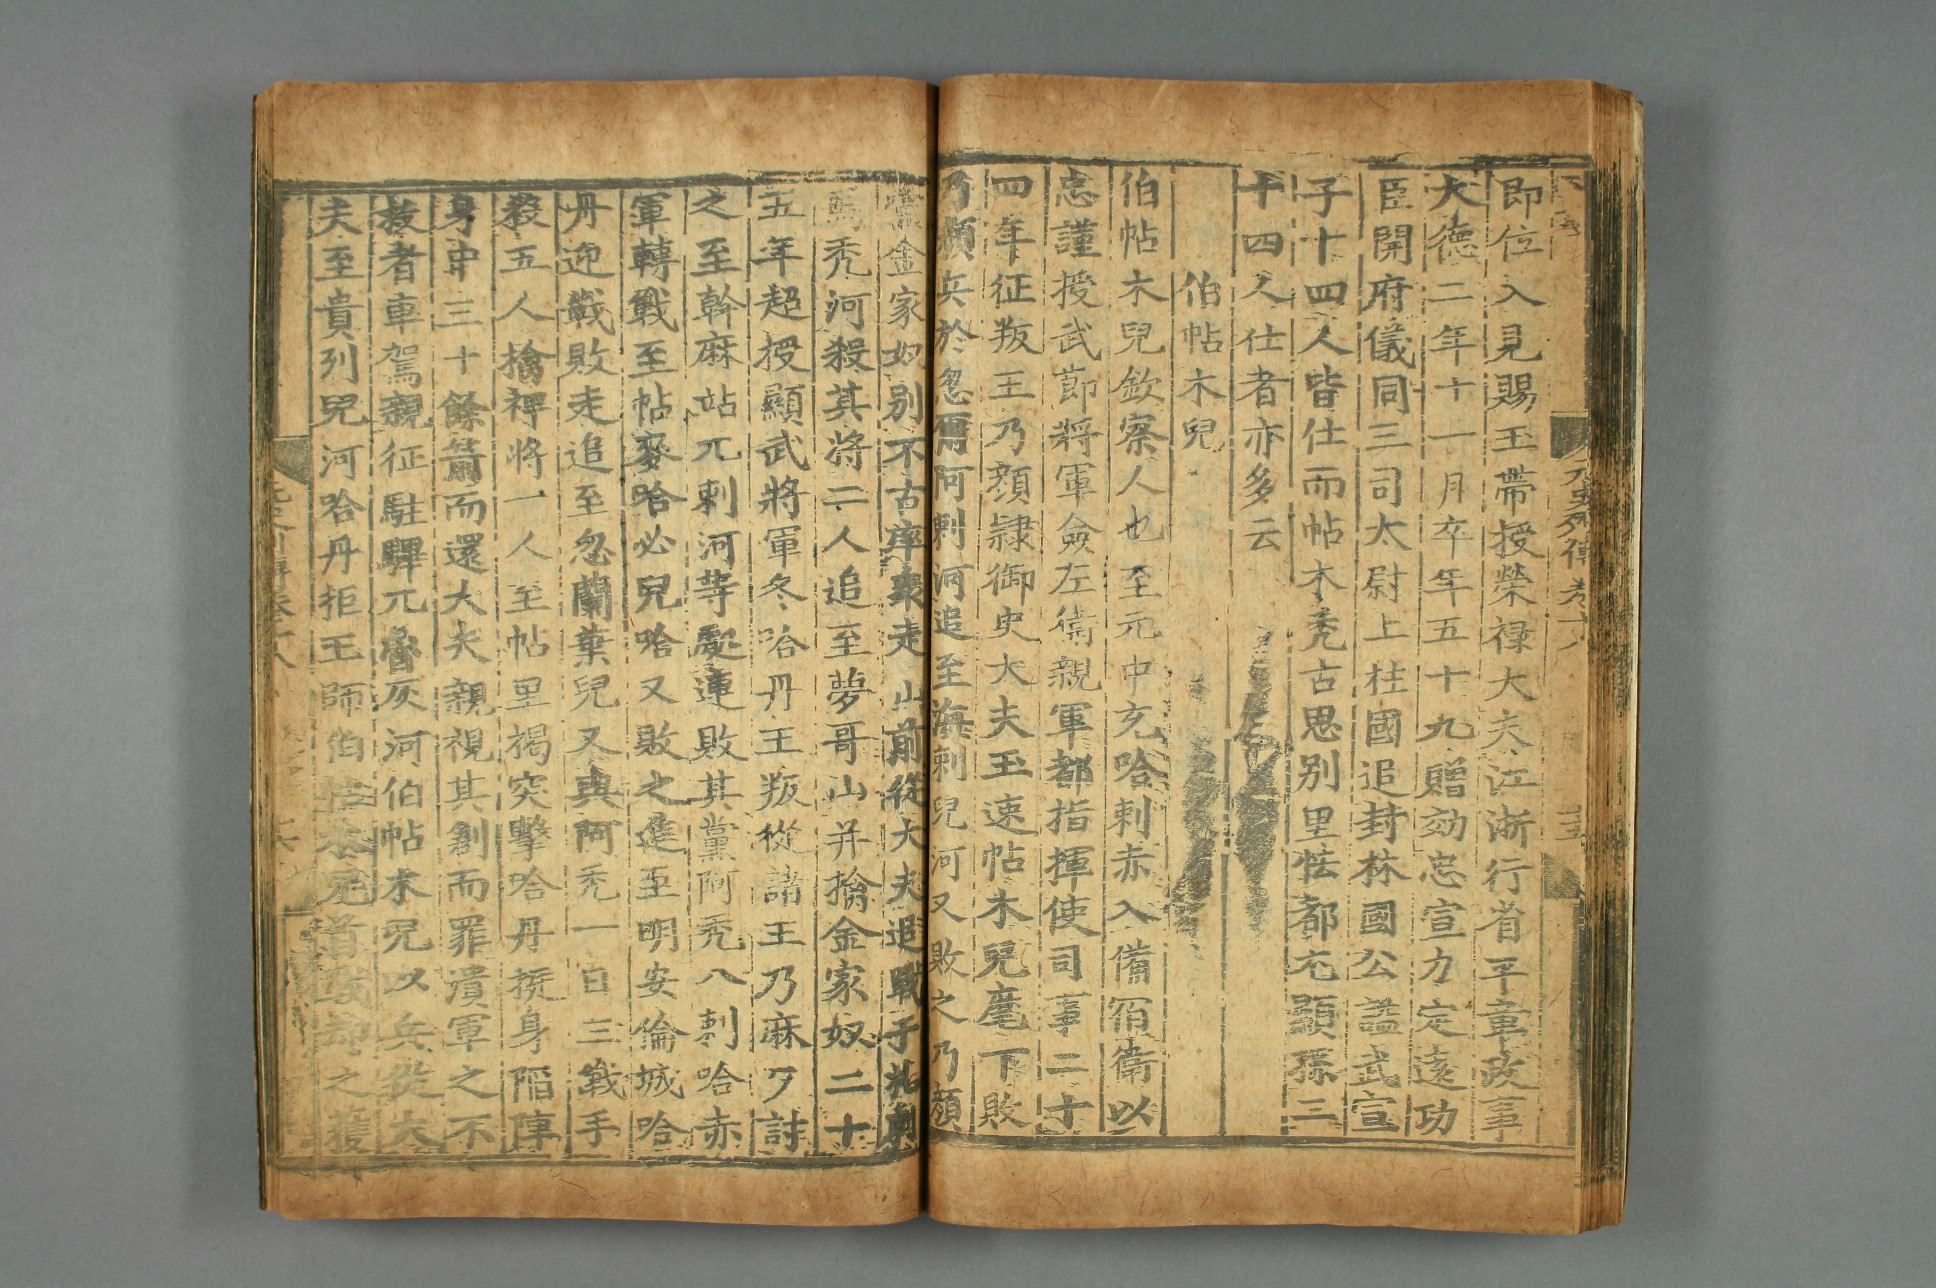 元史列傳卷十八
即位入見賜玉帶授榮禄大夫江浙行省平章政事
大德二年十一月卒年五十九贈効忠宣力定遠功
臣開府儀同三司太尉上柱國追封林國公謚武宣
子十四人皆仕而帖木禿古思别里怯都尤顯孫三
十四人仕者亦多云
伯帖木兒
伯帖木兒欽察人也至元中充哈剌赤入備宿衛以
忠謹授武節將軍僉左衛親軍都指揮使司事二十
四年征叛王乃顔隷御史大夫玉速帖木兒麾下敗
乃顔兵於忽爾阿剌河追至海剌兒河又敗之乃顔
黨金家奴别不古率衆走山前從大夫追戰于札剌
馬禿河殺其將二人追至夢哥山并擒金家奴二十
五年超授顯武將軍冬哈丹王叛從諸王乃麻歹討
之至斡麻站兀剌河等處連敗其黨阿禿八剌哈赤
軍轉戰至帖麥哈必兒哈又敗之進至明安倫城哈
丹迎戰敗走追至忽蘭葉兒又與阿禿一日三戰手
殺五人擒裨將一人至帖里揭突擊哈丹挺身陷陣
身中三十餘箭而還大夫親視其創而罪潰軍之不
救者車駕親征駐驆兀魯灰河伯帖木兒以兵從大
夫至貴列兒河哈丹拒王師伯帖木兒首戰却之獲